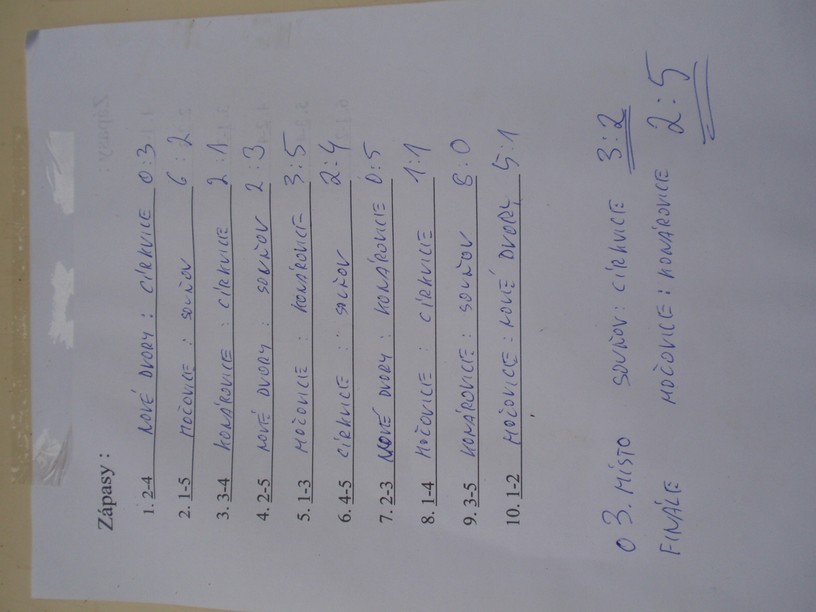 Zápasy :
1. 2-4 NOVÉ DVORY : CÍRKVICE 0:3
2. 1-5 MOČOVICE : SOUŇOV 6:2
3. 3-4 KONÁROVICE : CÍRKVICE 2:1
4. 2-5 NOVÉ DVORY : SOUŇOV 2:3
5. 1-3 MOČOVICE : KONÁROVICE 3:5
6. 4-5 CÍRKVICE : SOUŇOV 2:4
7. 2-3 NOVÉ DVORY : KONÁROVICE 0:5
8. 1-4 MOČOVICE : CÍRKVICE 1:1
9. 3-5 KONÁROVICE : SOUŇOV 8:0
10. 1-2 MOČOVICE : NOVÉ DVORY 5:1
O 3. MÍSTO SOUŇOV : CÍRKVICE 3:2
FINÁLE MOČOVICE : KONÁROVICE 2:5